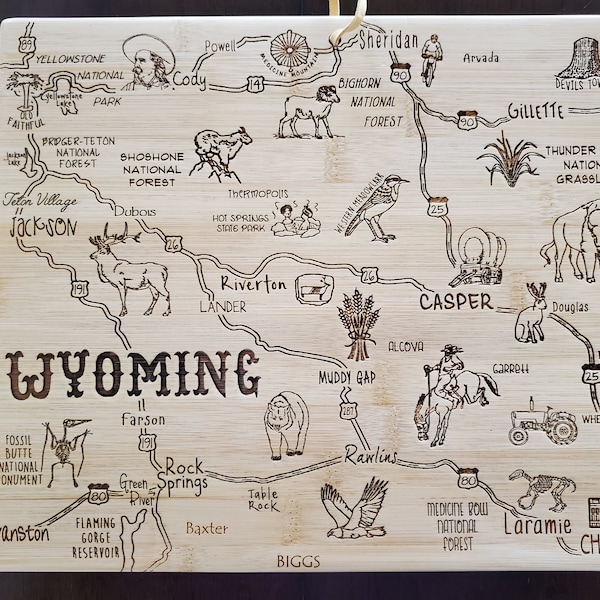 89
YELLOWSTONE
NATIONAL
PARK
Yellowstone
Lake
OLD
FAITHFUL
Cody
Powell
14
MEDICINE MOUNTAIN
Sheridan
90
Arvada
DEVILS TOW
BIGHORN
NATIONAL
FOREST
90
GILLETTE
BRIDGER-TETON
NATIONAL
FOREST
Jackson
Lake
SHOSHONE
NATIONAL
FOREST
THUNDER
NATION
GRASSL
Teton Village
JACKSON
Dubois
THERMOPOLIS
HOT SPRINGS
STATE PARK
WESTERN MEADOWLARK
25
26
191
Riverton
26
LANDER
CASPER
Douglas
WYOMING
MUDDY GAP
ALCOVA
Garrett
25
287
WHE
Farson
191
FOSSIL
BUTTE
NATIONAL
MONUMENT
Rock
Springs
Green
River
80
Rawlins
80
Table
Rock
MEDICINE BOW
NATIONAL
FOREST
Laramie
CH
vanston
FLAMING
GORGE
RESERVOIR
Baxter
BIGGS